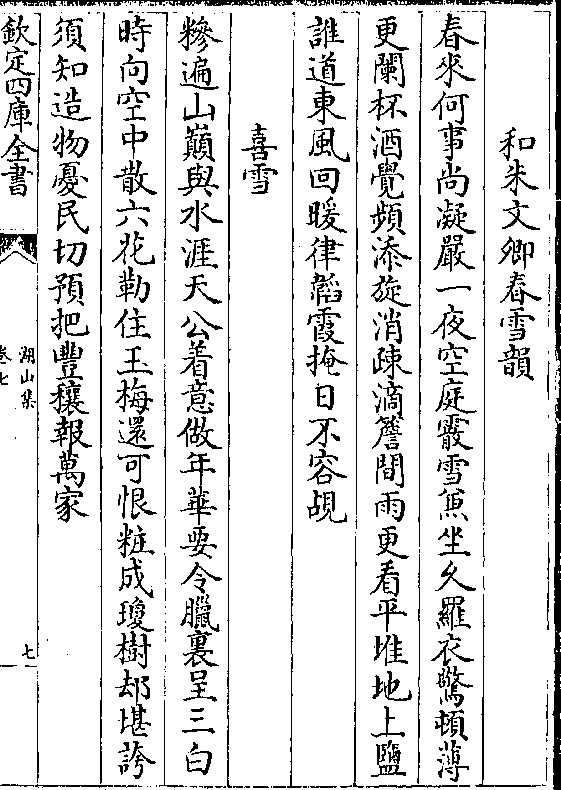 和朱文卿春雪韻
春來何事尚凝嚴一夜空庭霰雪兼坐久羅衣驚頓薄
更闌杯酒覺頻添旋消疎滴簷間雨更看平堆地上鹽
誰道東風回暖律韜霞掩日不容覘
喜雪
糝遍山巔與水涯天公着意做年華要令臘裏呈三白
時向空中散六花勒住玉梅還可恨粧成瓊樹却堪誇
須知造物憂民切預把豐穰報萬家
欽定四庫全書
湖山集
卷七
七